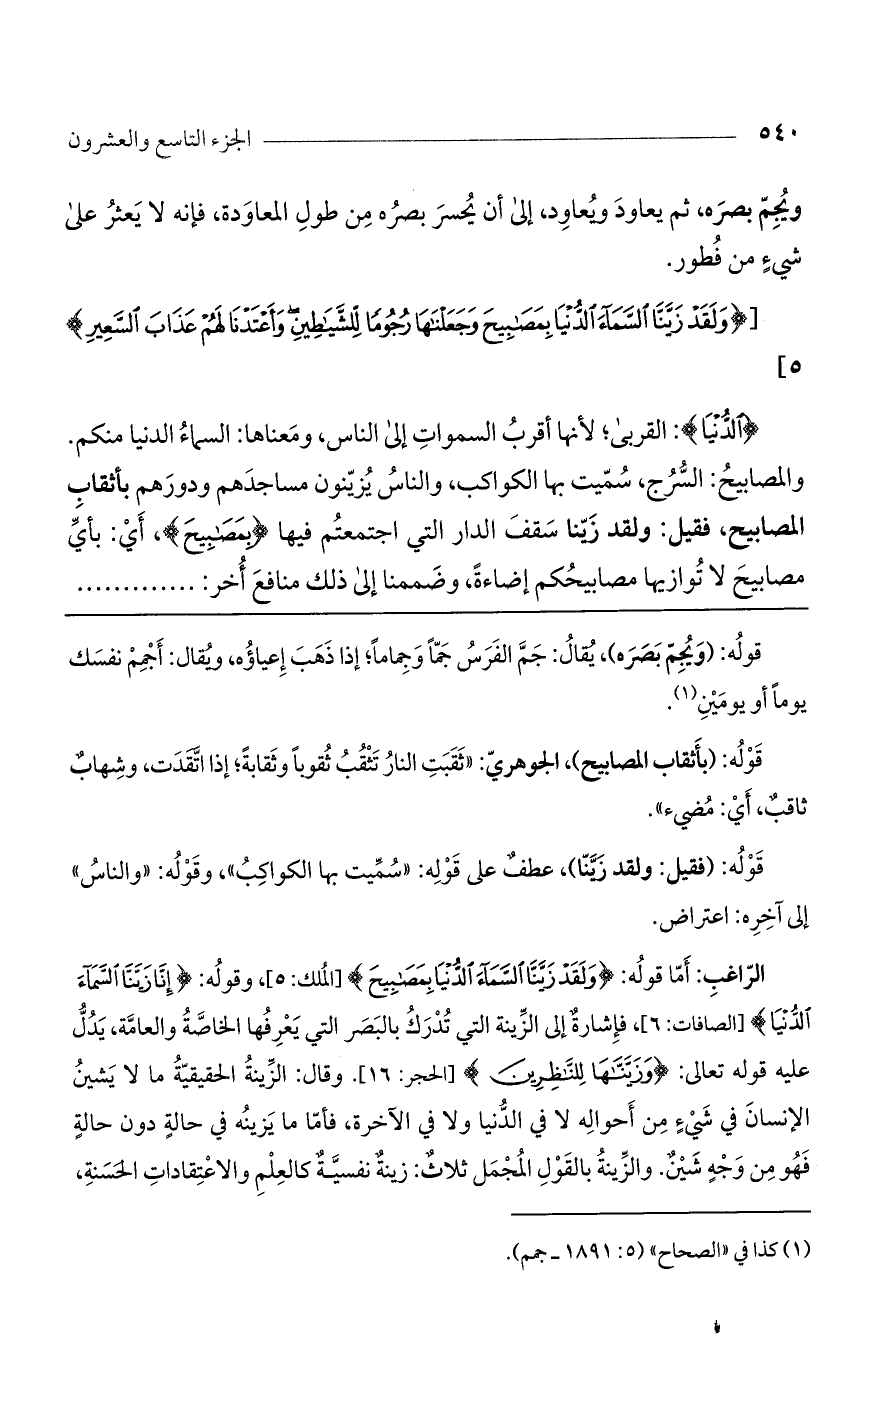 ٥٤٠ الجزء التاسع والعشرون
ويُجِمّ بصرَه، ثم يعاودَ ويُعاوِد، إلىٰ أن يُحسرَ بصرُه مِن طولِ المعاوَدة، فإنه لا يَعثرُ علىٰ
شيءٍ من فُطور.
[﴿وَلَقَدْ زَيَّنَّا ٱلسَّمَآءَ ٱلدُّنْيَا بِمَصَٰبِيحَ وَجَعَلْنَٰهَا رُجُومًا لِّلشَّيَٰطِينِ ۖ وَأَعْتَدْنَا لَهُمْ عَذَابَ ٱلسَّعِيرِ﴾
٥]
﴿ٱلدُّنْيَا﴾: القربىٰ؛ لأنها أقربُ السمواتِ إلىٰ الناس، ومَعناها: السماءُ الدنيا منكم.
والمصابيحُ: السُّرُج، سُمّيت بها الكواكب، والناسُ يُزيّنون مساجدَهم ودورَهم بأثقابِ
المصابيح، فقيل: ولقد زَيّنا سَقفَ الدار التي اجتمعتُم فيها ﴿بِمَصَٰبِيحَ﴾، أَيْ: بأيِّ
مصابيحَ لا تُوازيها مصابيحُكم إضاءةً، وضَممنا إلىٰ ذلك منافعَ أُخر: .............
قولُه: (ويُجِمّ بَصَرَه)، يُقالُ: جَمَّ الفَرَسُ جَمّاً وَجِماماً؛ إذا ذَهَبَ إعياؤُه، ويُقال: أَجْمِمْ نفسَك
يوماً أو يومَيْنِ(١).
قَوْلُه: (بأَثقاب المصابيح)، الجوهريّ: «ثَقَبَتِ النارُ تَثْقُبُ ثُقوباً وثَقابةً؛ إذا اتَّقَدَت، وشِهابٌ
ثاقبٌ، أَيْ: مُضيء».
قَوْلُه: (فقيل: ولقد زَيَّنّا)، عطفٌ على قَوْلِه: «سُمِّيت بها الكواكِبُ»، وقَوْلُه: «والناسُ»
إلى آخِرِه: اعتراض.
الرّاغبِ: أمّا قولُه: ﴿وَلَقَدْ زَيَّنَّا ٱلسَّمَآءَ ٱلدُّنْيَا بِمَصَٰبِيحَ﴾ [الملك: ٥]، وقولُه: ﴿إِنَّا زَيَّنَّا ٱلسَّمَآءَ
ٱلدُّنْيَا﴾ [الصافات: ٦]، فإشارةٌ إلى الزِّينة التي تُدْرَكُ بالبَصَر التي يَعْرِفُها الخاصَّةُ والعامَّة، يَدُلُّ
عليه قوله تعالى: ﴿وَزَيَّنَّٰهَا لِلنَّٰظِرِينَ﴾ [الحجر: ١٦]. وقال: الزِّينةُ الحقيقيّةُ ما لا يَشينُ
الإنسانَ في شَيْءٍ مِن أحوالِه لا في الدُّنيا ولا في الآخرة، فأمّا ما يَزينُه في حالةٍ دون حالةٍ
فَهُو مِن وَجْهٍ شَيْنٌ. والزِّينةُ بالقَوْلِ المُجْمَل ثلاثٌ: زينةٌ نفسيَّةٌ كالعِلْمِ والاعْتِقاداتِ الحَسَنةِ،
(١) كذا في «الصحاح» (٥: ١٨٩١ ـ جمم).